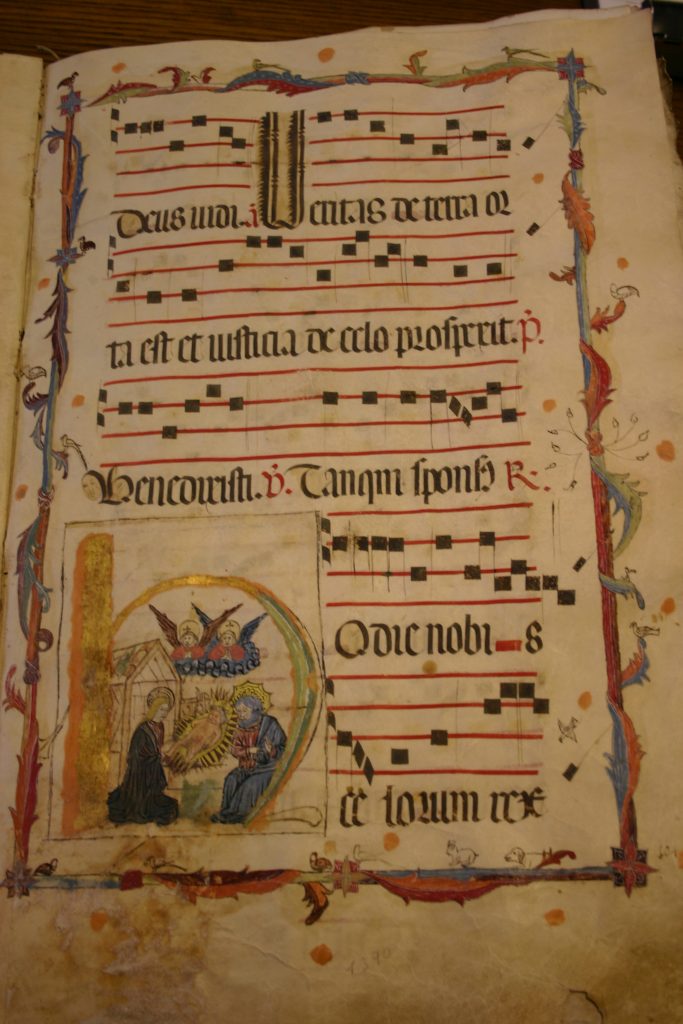 Deus iudi.a Veritas de terra or
ta est et iusticia de celo prosperit. p̃.
Benedixisti. ṽ. Tanqm spons9 R.
Hodie nobi s
ce lorum rex